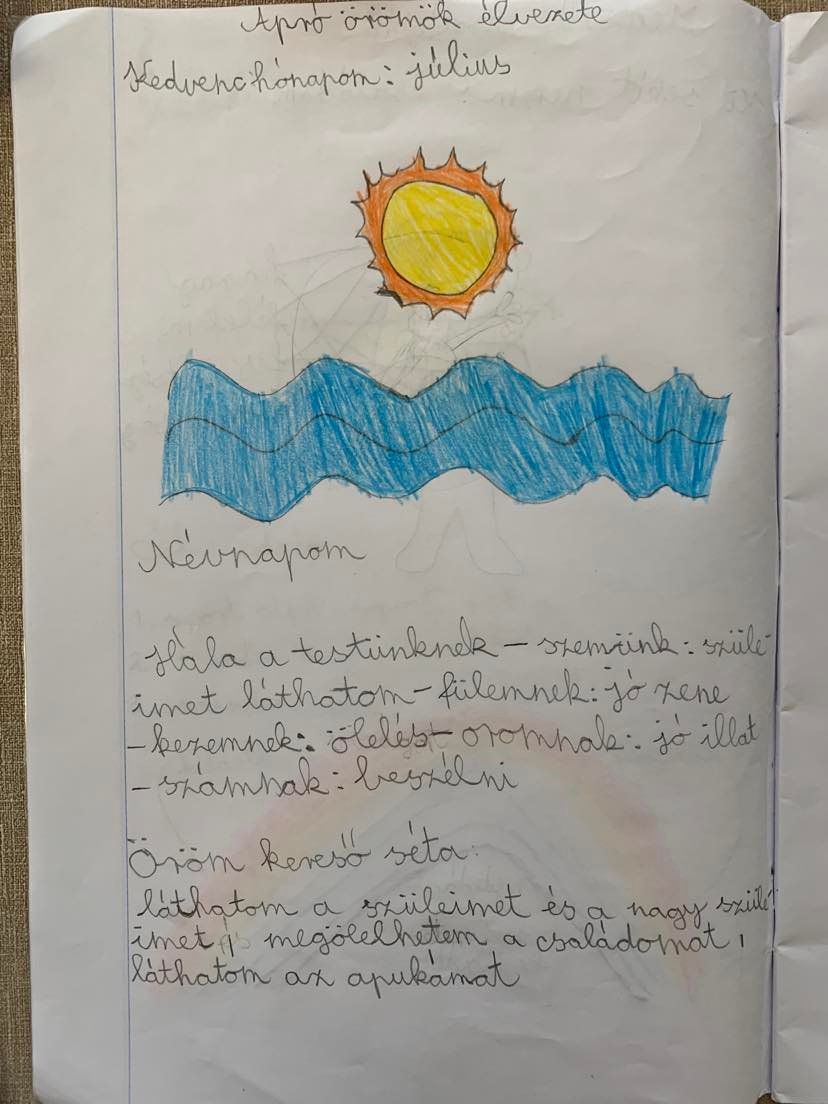 Apró örömök élvezete
Kedvenc hónapom: július
Névnapom
Hála a testünknek - szemünk: szüle-
imet láthatom - fülemnek: jó zene
- kezemnek: ölelést - oromnak: jó illat
- számnak: beszélni
Öröm kereső séta:
láthatom a szüleimet és a nagy szüle-
imet, megölelhetem a családomat,
láthatom az apukámat